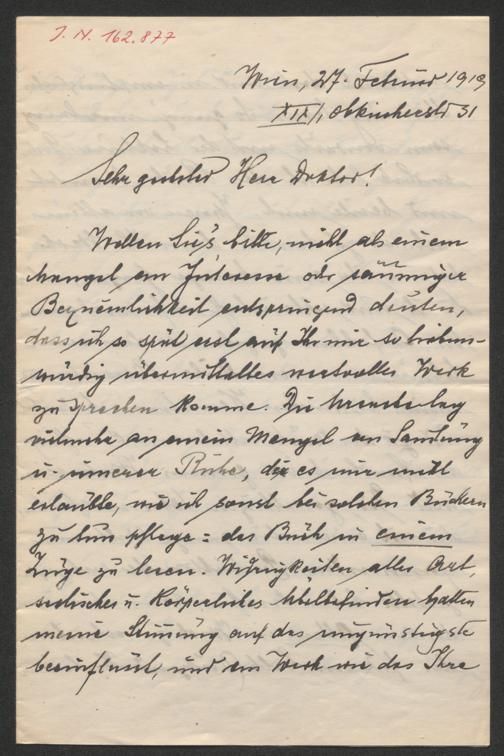 J. N. 162.877
Wien, 27. Februar 1919
XIX/1, Obkirchergasse 31
Sehr geehrter Herr Doktor!
Wollen Sie's bitte, nicht als einem
Mangel an Interesse oder säumiger
Bequemlichkeit entspringend deuten,
dass ich so spät erst auf Ihr mir so liebens-
würdig übermitteltes wertvolles Werk
zu sprechen komme. Die Ursache lag
vielmehr an einem Mangel an Samlung
u. innerer Ruhe, die es mir nicht
erlaubte, wie ich sonst bei solchen Büchern
zu tun pflege: das Buch in einem
Zuge zu lesen. Widrigkeiten aller Art,
seelisches u. körperliches Übelbefinden hatten
meine Stimung auf das ungünstigste
beeinflusst, und ein Werk wie das Ihre